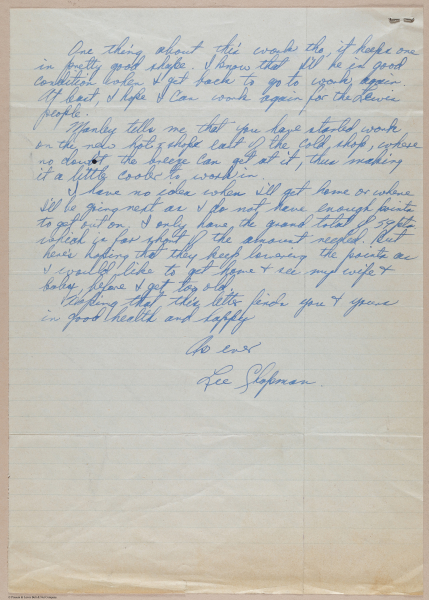 One thing about this work tho, it keeps one
in pretty good shape. I know that I'll be in good
condition when I get back to go to work again
At least, I hope I can work again for the Lewis
people.
Manley tells me that you have started work
on the new hot shop east of the cold shop, where
no doubt the breeze can get at it, thus making
it a little cooler to work in.
I have no idea when I'll get home or where
I'll be going next as I do not have enough points
to get out on. I only have the grand total of
which is far short of the amount needed. But
here's hoping that they keep lowering the points as
I would like to get home & see my wife &
baby before I get too old.
Hoping that this letter finds you & yours
in good health and happy
As ever
Lee Slapman.